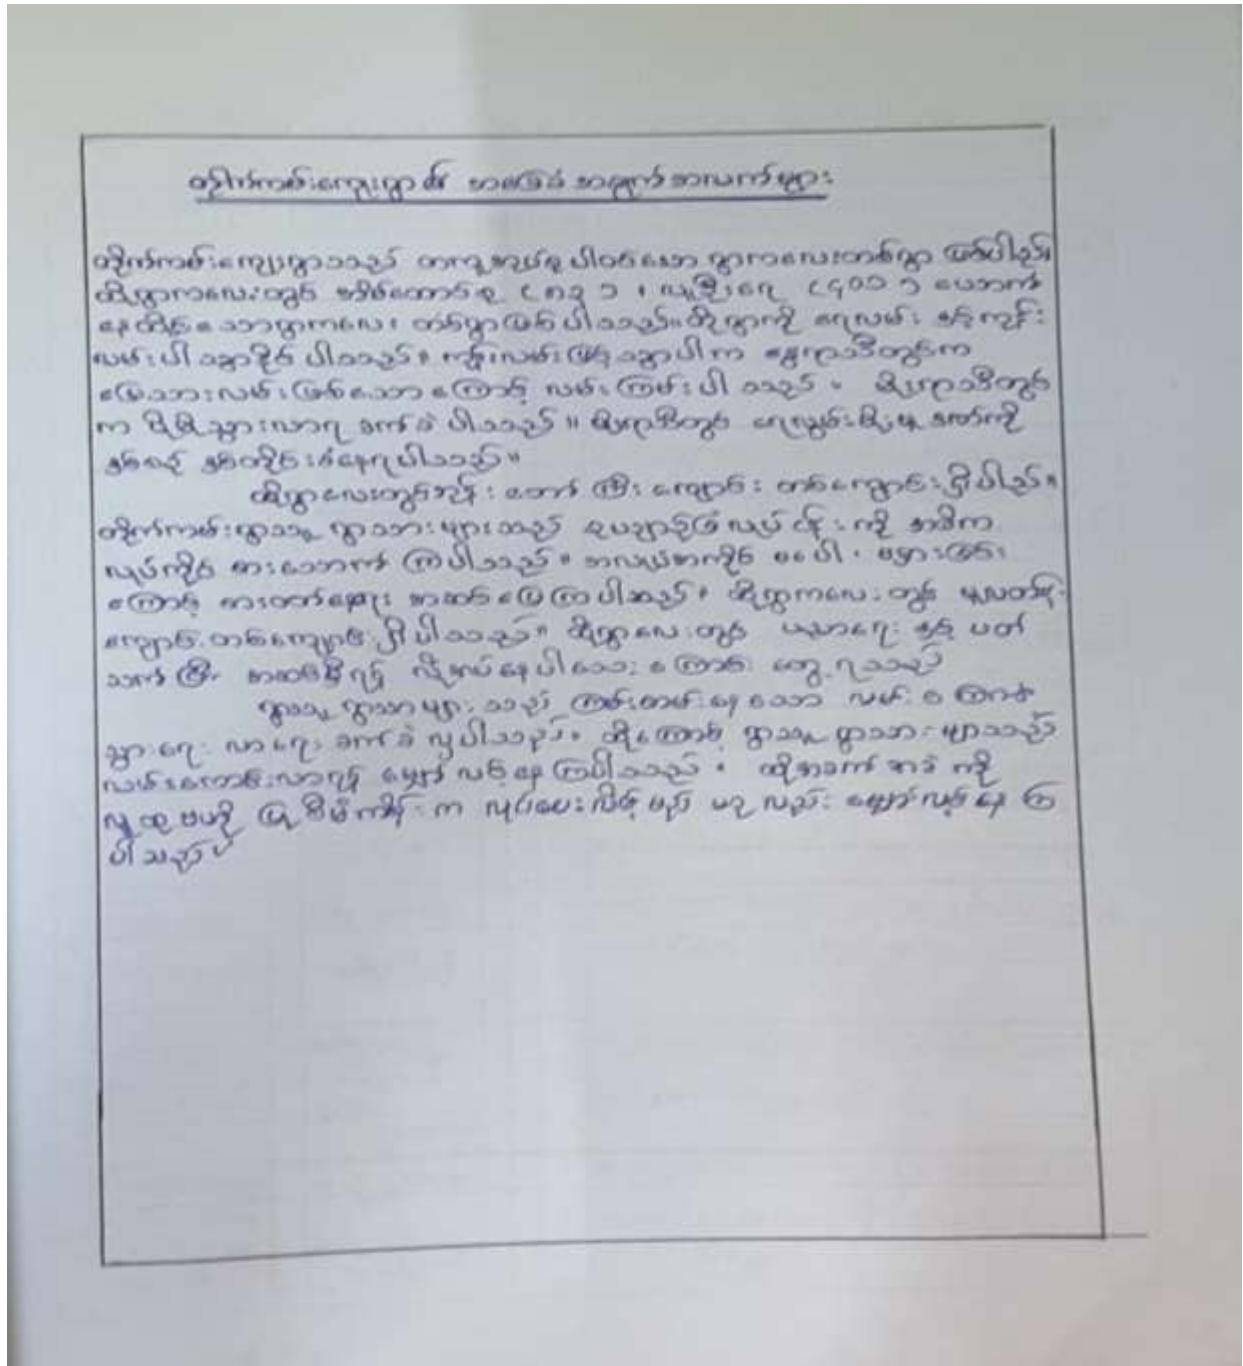 တိုက်ကမ်းကျေးရွာ၏ အခြေခံ အချက်အလက်များ
တိုက်ကမ်းကျေးရွာသည် တကူအုပ်စုပါဝင်သော ရွာကလေးတစ်ရွာ ဖြစ်ပါသည်။
ထိုရွာကလေးတွင် အိမ်ထောင်စု လူဦးရေ ယောက်
နေထိုင်သောရွာကလေး တစ်ရွာဖြစ်ပါသည်။ ထိုရွာကို ရေလမ်း နှင့်ကုန်း
လမ်းပါ သွားနိုင် ပါသည်။ ကုန်းလမ်းဖြင့် သွားပါက နွေရာသီတွင်က
မြေသားလမ်းဖြစ်သော ကြောင့် လမ်းကြမ်းပါ သည်။ မိုးရာသီတွင်
က ပိုမိုသွားလာရ ခက်ခဲ ပါသည်။ မိုးရာသီတွင် ရေလွှမ်းမိုးမှု ဒဏ်ကို
နှစ်စဉ် နှစ်တိုင်းခံနေရပါသည်။
ထိုရွာလေးတွင်ဘုန်း တော် ကြီး ကျောင်း တစ်ကျောင်းရှိပါသည်။
တိုက်ကမ်းရွာသူ ရွာသားများသည် လုပ်ငန်းကို အဓိက
လုပ်ကိုင် စားသောက် ကြပါသည်။ အလုပ်အကိုင် မပေါ များခြင်း
ကြောင့် စားဝတ်နေရေး အဆင်မပြေကြပါသည်။ ထိုရွာကလေး တွင် မူလတန်း
ကျောင်း တစ်ကျောင်း ရှိပါသည်။ ထိုရွာလေး တွင် ပညာရေး နှင့် ပတ်
သက် ပြီး အဆင့်မြှင့်ရန် လိုအပ်နေပါသေး ကြောင်း တွေ့ ရသည်
ရွာသူ ရွာသားများ သည် ကြမ်းတမ်းနေ သော လမ်း ကြောင့်
သွားရေး လာရေး ခက်ခဲ လှပါသည်။ ထို့ကြောင့် ရွာသူ ရွာသား များသည်
လမ်းကောင်းလာရန် မျှော် လင့်နေ ကြပါသည်။ ထိုအခက် အခဲ ကို
လူထုဗဟို ပြုစီမံကိန်း က လုပ်ပေးလိမ့်မည် ဟု လည်း မျှော်လင့်နေ ကြ
ပါသည်။